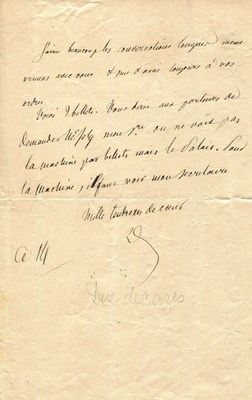 J'aime beaucoup les conversations longues même
avec vous & suis toujours à vos
ordres.
Voici 2 billets. Vous direz aux porteurs de
demander mon ou ne voit pas
la machine par billets mais le Palais. Pour
la machine, il faut voir mon secrétaire
Mille tendresses de cœur
Ce 14
Duc decazes